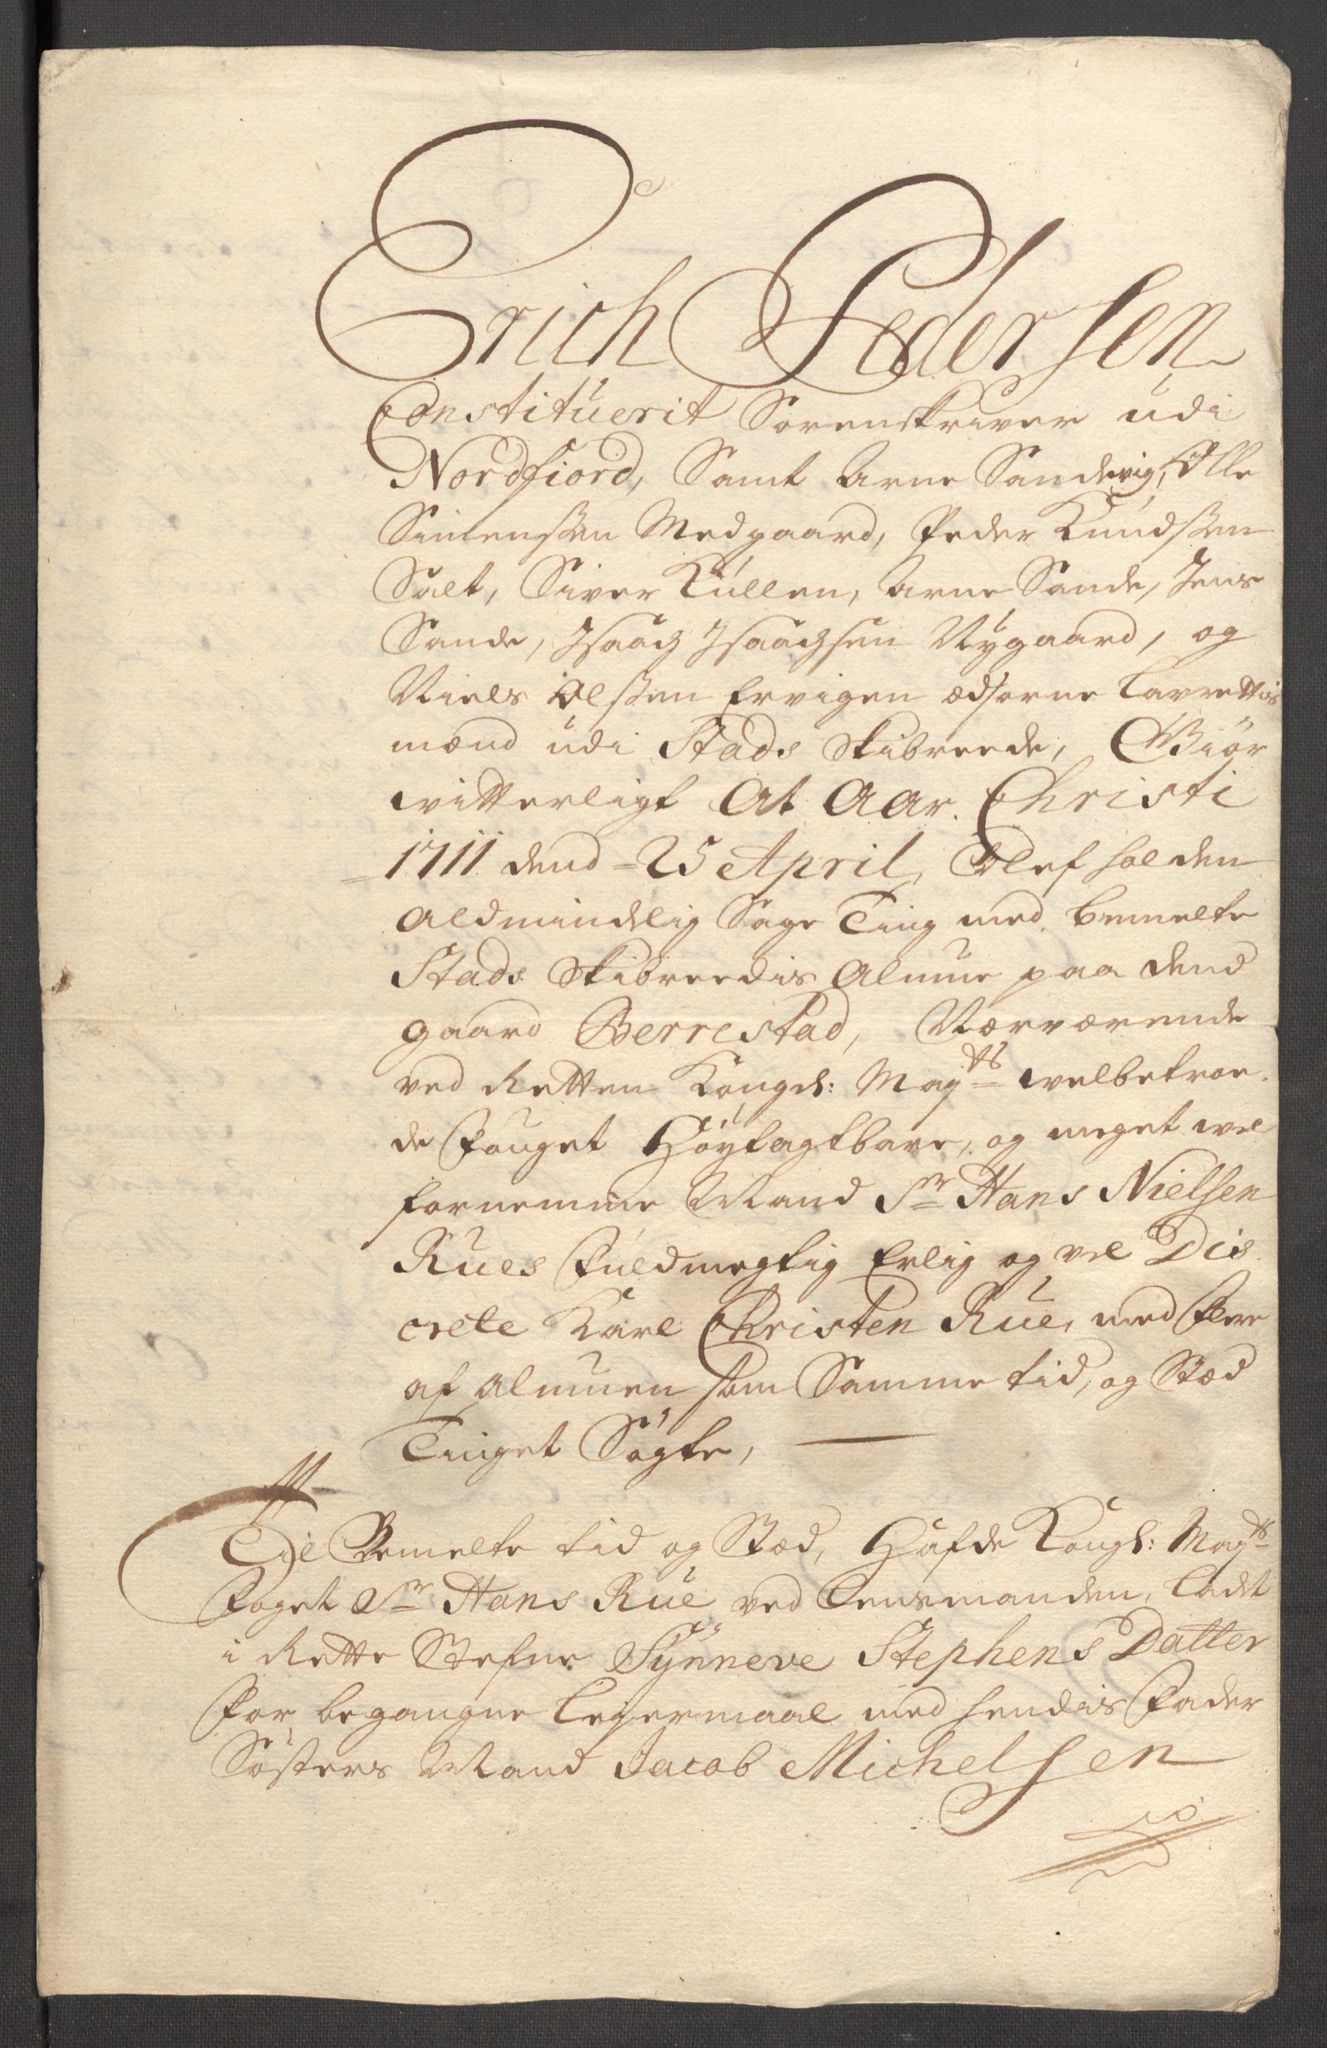 Erich Pedersen
Constituerit Sorenskriver udi
Nordfiord, Samt Arne Sandvig, Olle
Simenssen Medgaard, Peder Knudssen
Salt, Siver Küllen, Arne Sande, Jens
Sande, Isaach Isaachsen Nÿgaard, og
Niels Olssen Ervigen ædsorne Lavrettis
mænd udi Stads Skibreede, Giör
witterligt At Aar Christi
1711 dend 25 April, Blef holden
Aldmindelig Sage Ting med bemelte
Stads Skibreedis Almue paa dend
gaard Berrestad, Nærværende
ved Retten Kongel: Maÿts welbetroe
de Fouget Höÿtagtbare, og meget wel
fornemme Mand Sr Hans Nielsen
Rues Fuldmegtig Erlig og vel Dis
crete Karl Christen Rue, med flere
af Almuen som Samme tid, og Stæd
Tinget Sögte,
Til Bemelte tid og Stæd, Hafde Kongl: Mayts
Foget Sr Hans Rue ved Lensmanden, Ladt
i Rette Stefne Sÿnneve Stephens Datter
For begangne Leyermaal med hendis Fader
Süsters Mand Jacob Michelsen